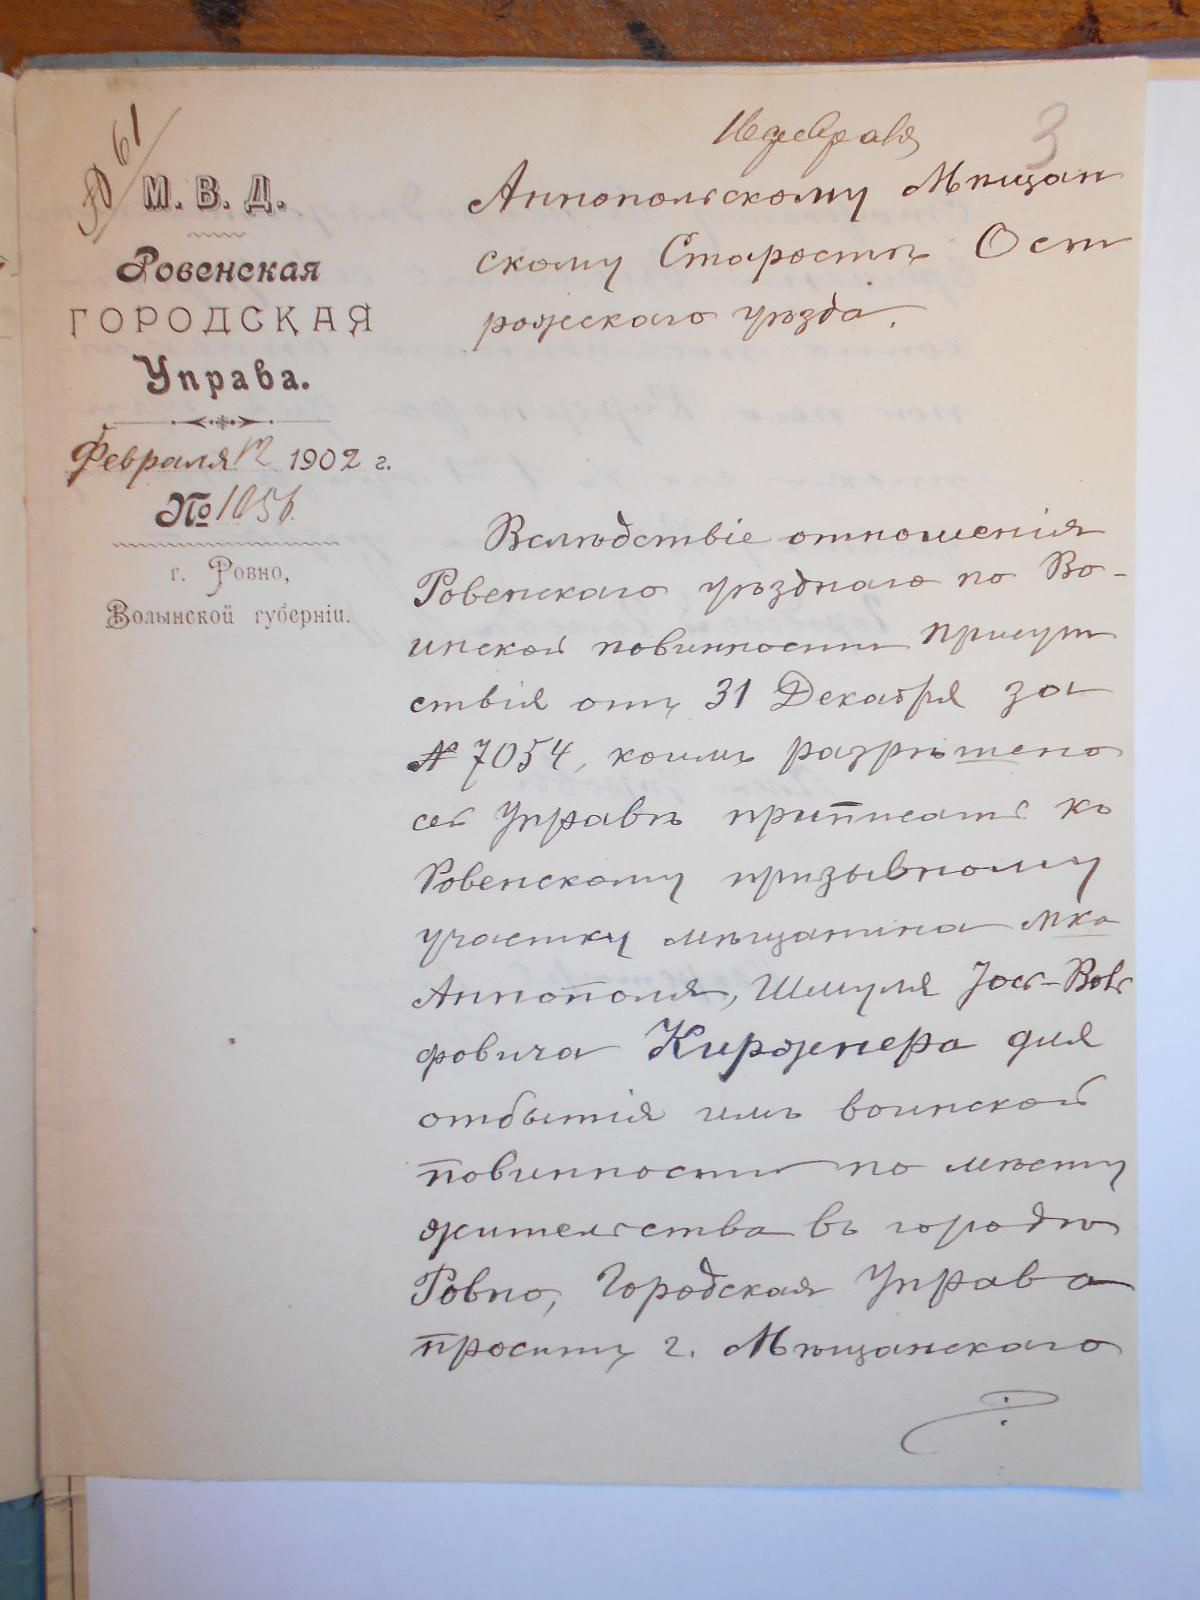 № 61
М. В. Д.
Ровенская
ГОРОДСКАЯ
Управа.
Февраля 12 1902 г.
№ 1056.
г. Ровно,
Волынской губернiи.
3
Аннопольскому Мѣщан
скому Старостѣ Ост
рожскаго уѣзда.
Вслѣдствiе отношенiя
Ровенскаго уѣзднаго по Во-
инской повинности Присут
ствiя отъ 31 Декабря за
№ 7054, коимъ разрѣшено
сей Управѣ приписать къ
Ровенскому призывному
участку мѣщанина м-ка
Аннополя, Шмуля Iос-Воль
фовича Киржнера для
отбытiя имъ воинской
повинности по мѣсту
жительства въ городѣ
Ровно, Городская Управа
проситъ г. Мѣщанскаго